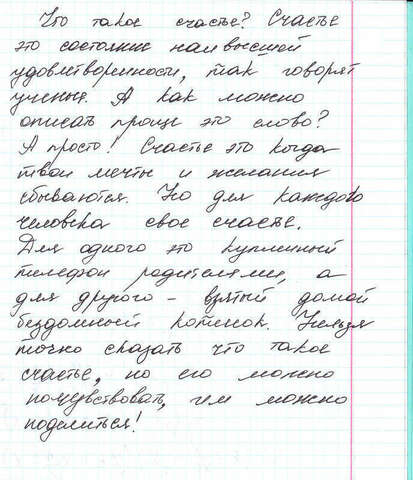 Что такое счастье? Счастье
это состояние наивысшей
удовлетворенности, так говорят
ученые. А как можно
описать проще это слово?
А просто! Счастье это когда
твои мечты и желания
сбываются. Но для каждого
человека свое счастье.
Для одного это купленный
телефон родителями, а
для другого – взятый домой
бездомный котенок. Нельзя
точно сказать что такое
счастье, но его можно
почувствовать, чем можно
поделиться!